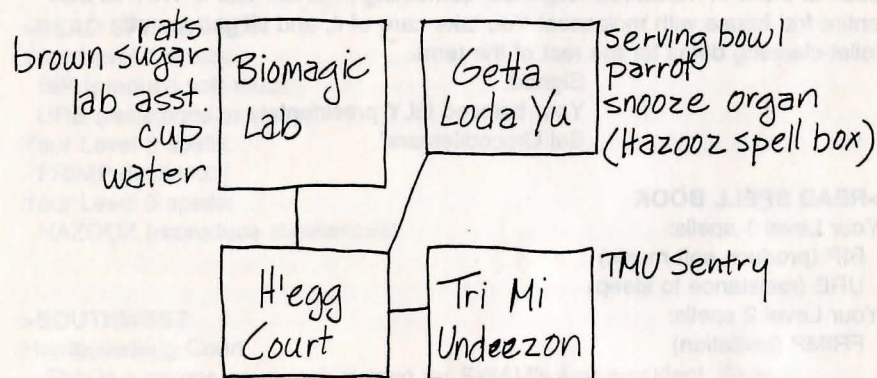 rats
brown sugar
lab asst.
cup
water
Biomagic
Lab
Getta
Loda Yu
serving bowl
parrot
snooze organ
(Hazooz spell box)
H'egg
Court
Tri Mi
Undeezon
TMU Sentry